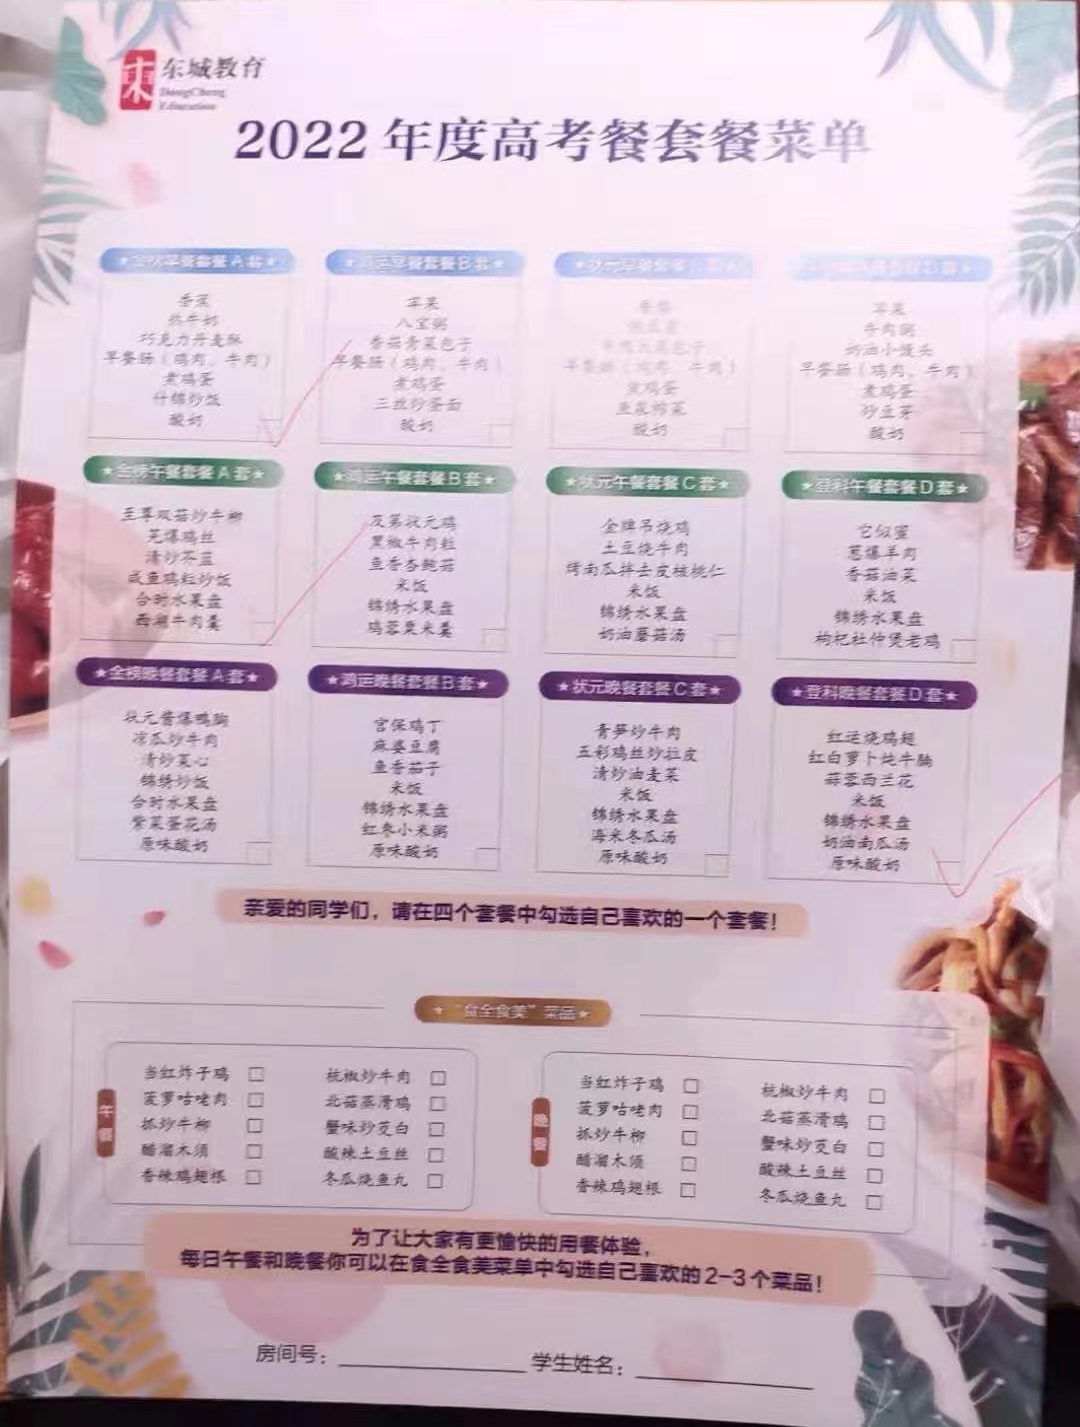 东城教育
DongCheng
Education
2022年度高考餐套餐菜单
★金榜早餐套餐A套★
香蕉
热牛奶
巧克力丹麦酥
早餐肠（鸡肉、牛肉）
煮鸡蛋
什锦炒饭
酸奶
★鸿运早餐套餐B套★
苹果
八宝粥
香菇青菜包子
早餐肠（鸡肉、牛肉）
煮鸡蛋
三丝炒蛋面
酸奶
★状元早餐套餐
早餐肠（鸡肉、牛肉）
煮鸡蛋
酸奶
早餐套餐D套★
苹果
牛肉粥
奶油小馒头
早餐肠（鸡肉、牛肉）
煮鸡蛋
炒豆芽
酸奶
★金榜午餐套餐A套★
至尊双菇炒牛柳
芫爆鸡丝
清炒芥蓝
咸鱼鸡粒炒饭
合时水果盘
西湖牛肉羹
★鸿运午餐套餐B套★
及第状元鸡
黑椒牛肉粒
鱼香杏鲍菇
米饭
锦绣水果盘
鸡蓉粟米羹
★状元午餐套餐C套★
金牌吊烧鸡
土豆烧牛肉
烤南瓜拌去皮核桃仁
米饭
锦绣水果盘
奶油蘑菇汤
★登科午餐套餐D套★
它似蜜
葱爆羊肉
香菇油菜
米饭
锦绣水果盘
枸杞杜仲煲老鸡
★金榜晚餐套餐A套★
状元酱爆鸭胸
凉瓜炒牛肉
清炒菜心
锦绣炒饭
合时水果盘
紫菜蛋花汤
原味酸奶
★鸿运晚餐套餐B套★
宫保鸡丁
麻婆豆腐
鱼香茄子
米饭
锦绣水果盘
红枣小米粥
原味酸奶
★状元晚餐套餐C套★
青笋炒牛肉
五彩鸡丝炒拉皮
清炒油麦菜
米饭
锦绣水果盘
海米冬瓜汤
原味酸奶
★登科晚餐套餐D套★
红运烧鸡翅
红白萝卜炖牛腩
蒜蓉西兰花
米饭
锦绣水果盘
奶油南瓜汤
原味酸奶
亲爱的同学们，请在四个套餐中勾选自己喜欢的一个套餐！
★“食全食美”菜品★
午餐
当红炸子鸡 □ 杭椒炒牛肉 □
菠萝咕咾肉 □ 北菇蒸滑鸡 □
抓炒牛柳 □ 蟹味炒茭白 □
醋溜木须 □ 酸辣土豆丝 □
香辣鸡翅根 □ 冬瓜烧鱼丸 □
晚餐
当红炸子鸡 □ 杭椒炒牛肉 □
菠萝咕咾肉 □ 北菇蒸滑鸡 □
抓炒牛柳 □ 蟹味炒茭白 □
醋溜木须 □ 酸辣土豆丝 □
香辣鸡翅根 □ 冬瓜烧鱼丸 □
为了让大家有更愉快的用餐体验，
每日午餐和晚餐你可以在食全食美菜单中勾选自己喜欢的2-3个菜品！
房间号：
学生姓名：